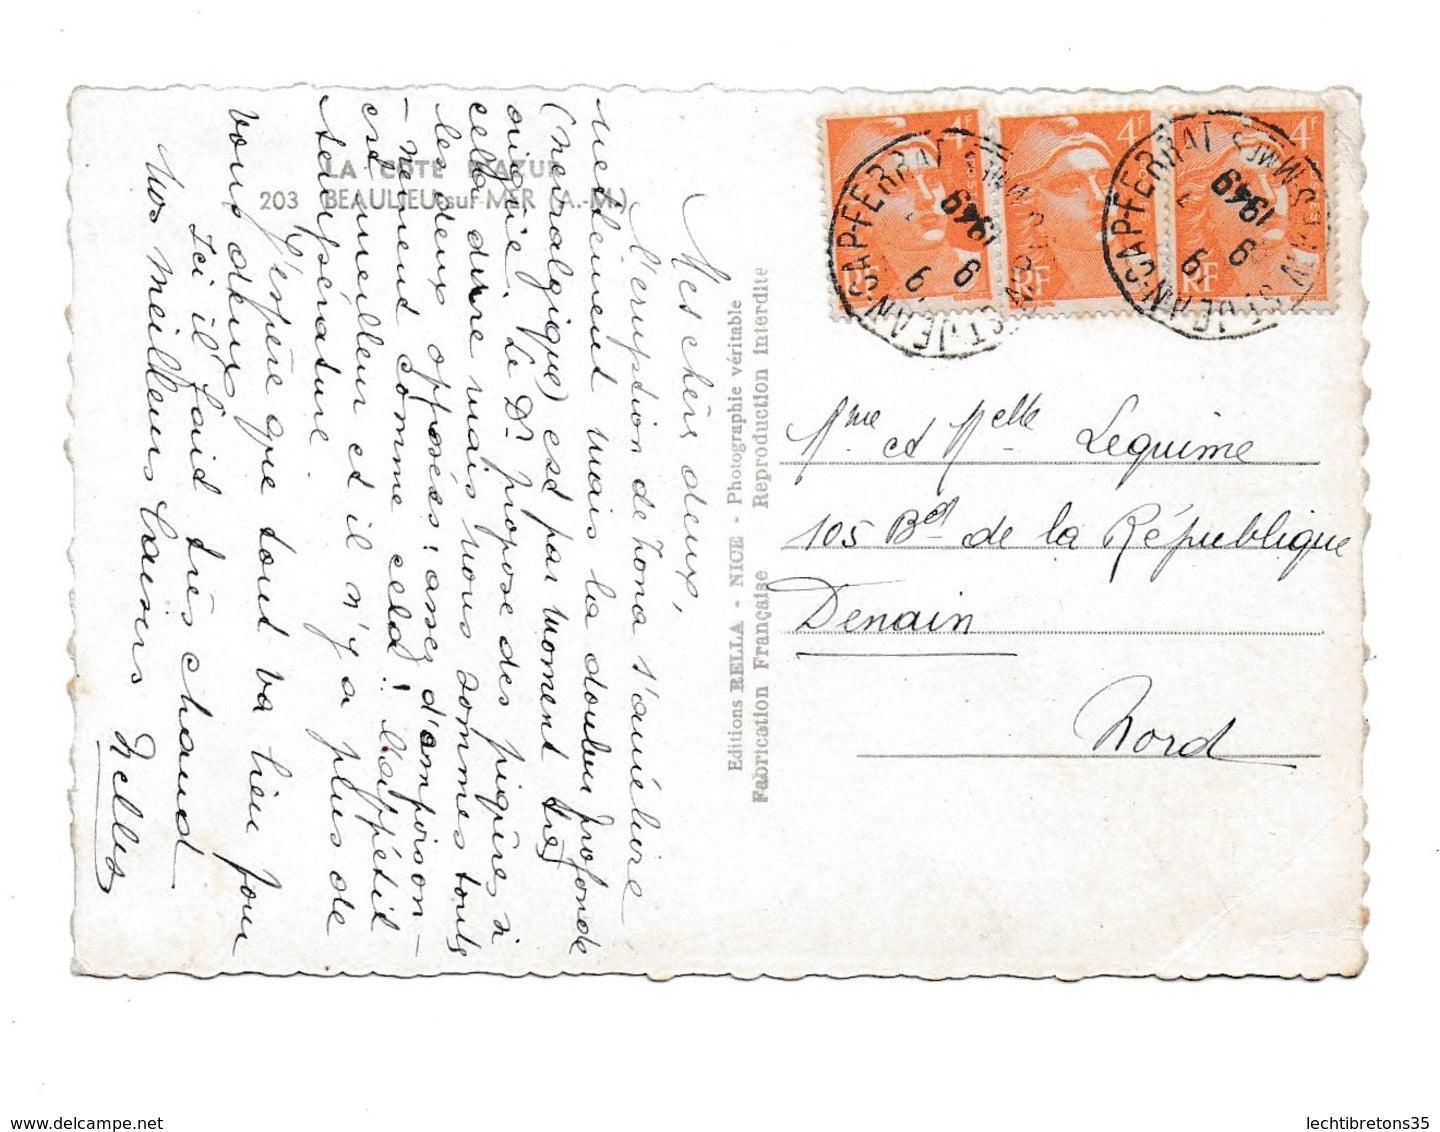 LA CÔTE D'AZUR
203 BEAULIEU-sur-MER (A.-M.)
Mes chères deux,
l'éruption de zona s'améliore
nettement mais la douleur profonde
(nevralgique) est par moment très
aigüe. Le Dr propose des piqûres à
cella dure mais nous sommes tous
les deux opposés : assez d'empoison-
-nement comme cela ! L'appétit
est meilleur et il n'y a plus de
température.
J'espère que tout va bien pour
vous deux
Ici il faid très chaud
Nos meilleurs baisers
Editions RELLA - NICE - Photographie véritable
Fabrication Française Reproduction interdite
4F
4F
4F
RF
RF
RF
ST-JEAN-CAP-FERRAT
ALPES-MMES
9
9
1949
ST-JEAN-CAP-FERRAT
ALPES-MMES
9
9
1949
Mme et Melle Lequime
105 Bd de la République
Denain
Nord
delcampe.net
lechtibretons35